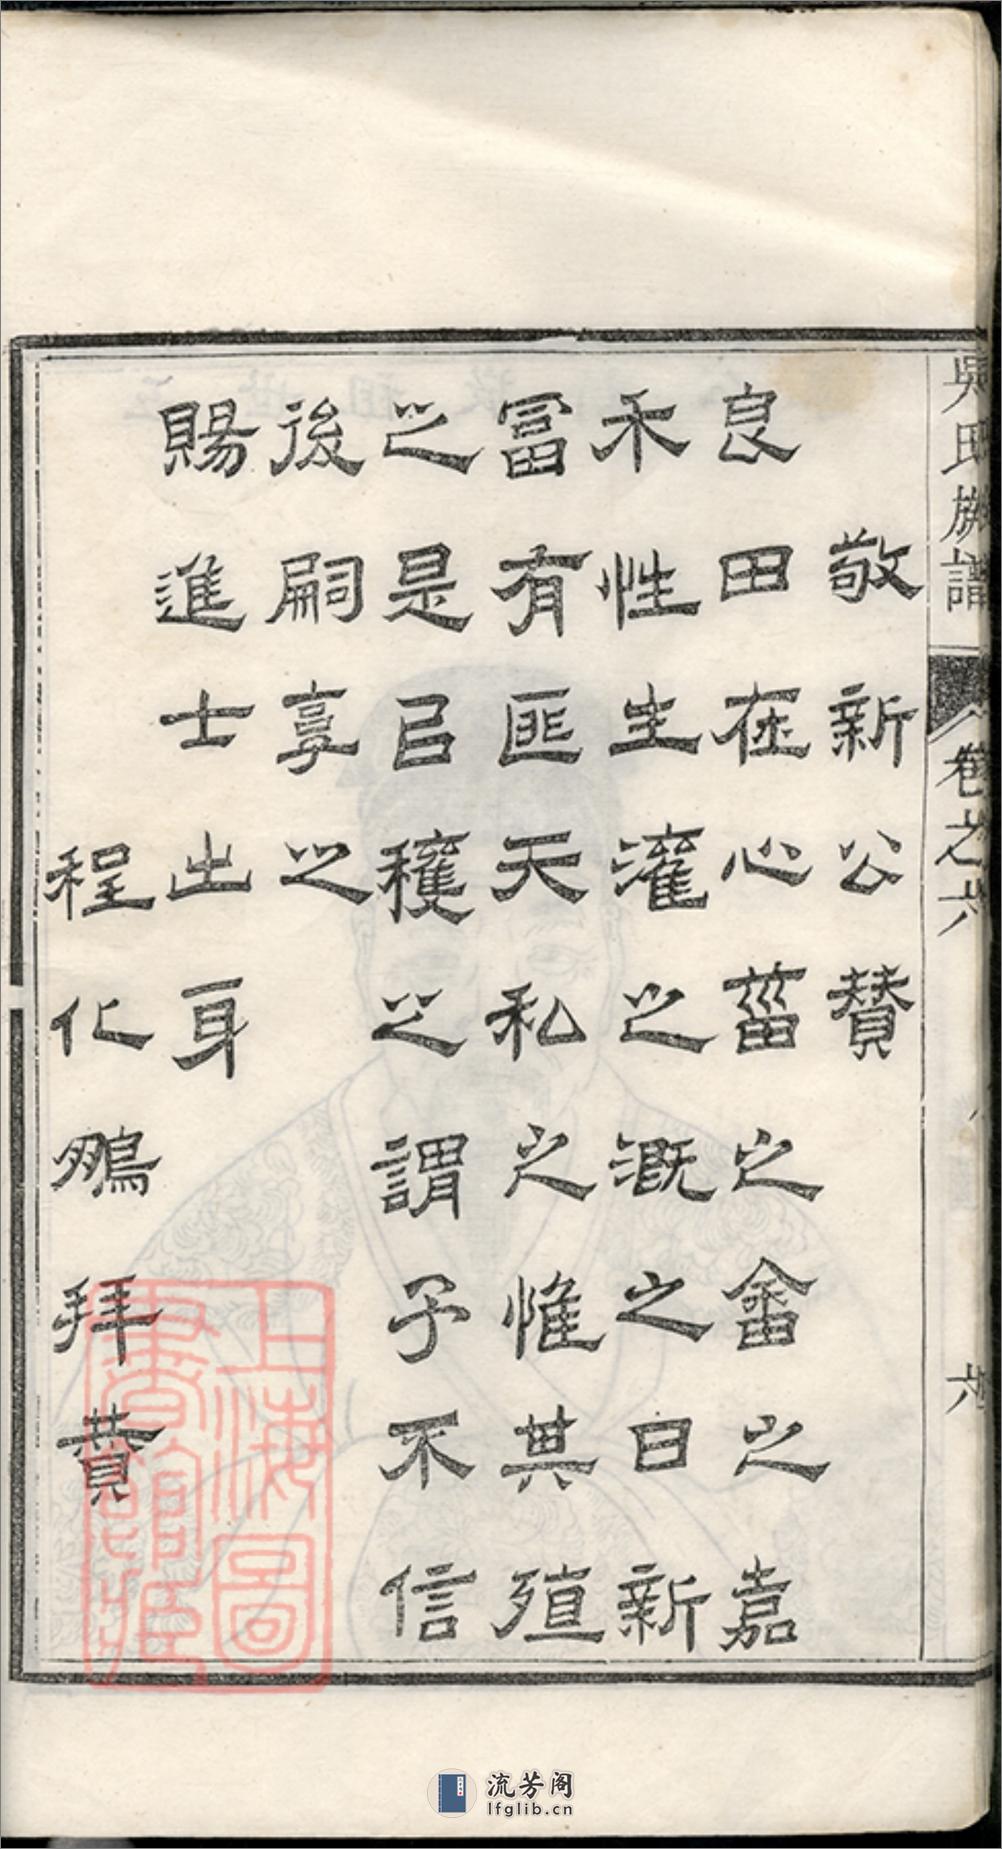 吳氏族譜 卷之六 六
敬新公贊
良田在心菑之畬之嘉
禾性生灌之溉之日新
富有匪天私之惟其殖
之是㠯穫之謂予不信
後嗣享之
賜進士出身
程化鵬拜贊
上海圖
書館藏
流芳阁
lfglib.cn